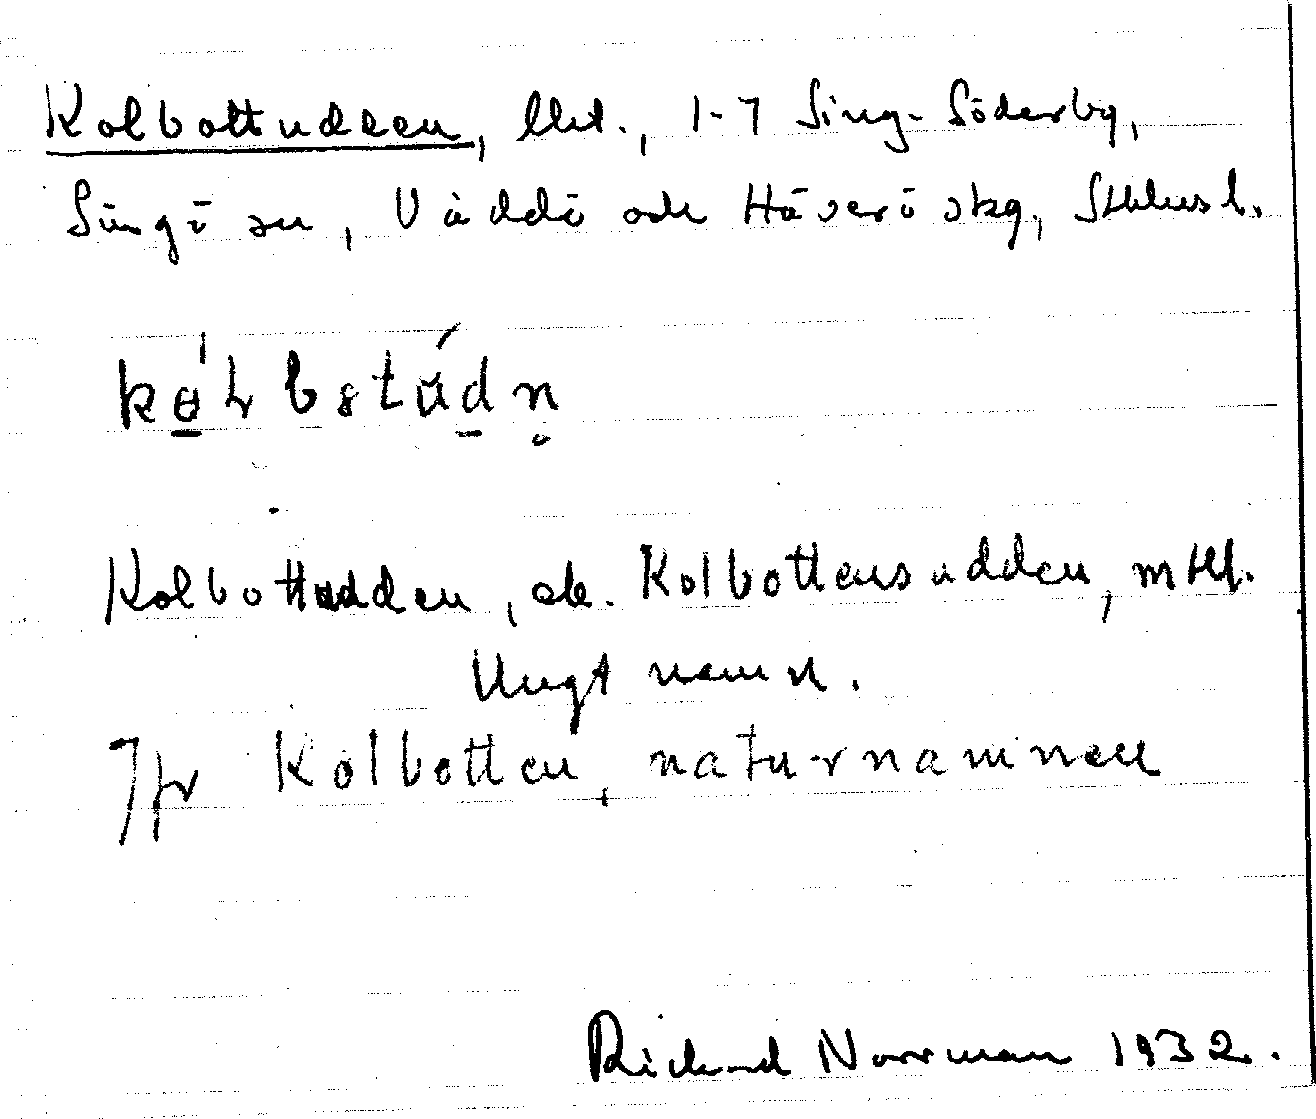 Kolbottudden, lht., 1-7 Sing-Söderby,
Singö sn, Väddö och Häverö skg, Sthlms l.
Kolbottudden, el. Kolbottensudden, mtrl.
Ungt namn.
Jfr Kolbotten, naturnamnen
Rickard Norrman 1932.